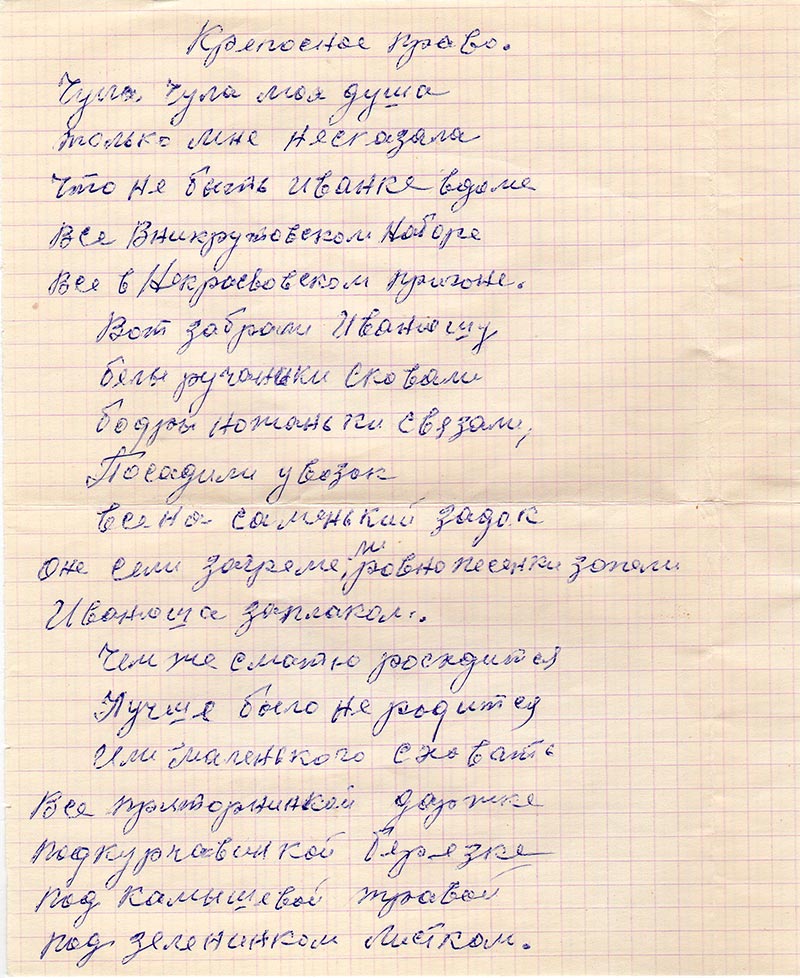 Крепосное право.
Чула, чула моя душа
только мне несказала
Что не быть Иванке вдоме
Все Вникрутовском Наборе
Все в Некрасвовском пригоне.
Вот забрали Иваношу
белы рученьки сковали
бодры ноженьки связали,
Посадили увозок
все на саменький задок
Оне сели загремели, ровно песенки запели
Иваноша заплакал.
Чем же сматю росходится
Лучше было не родится
Или маленького сховать
Все приторнинкой дорожке
подкурчавинкой берёзке
под камышевой травой
под зеленинком листком.